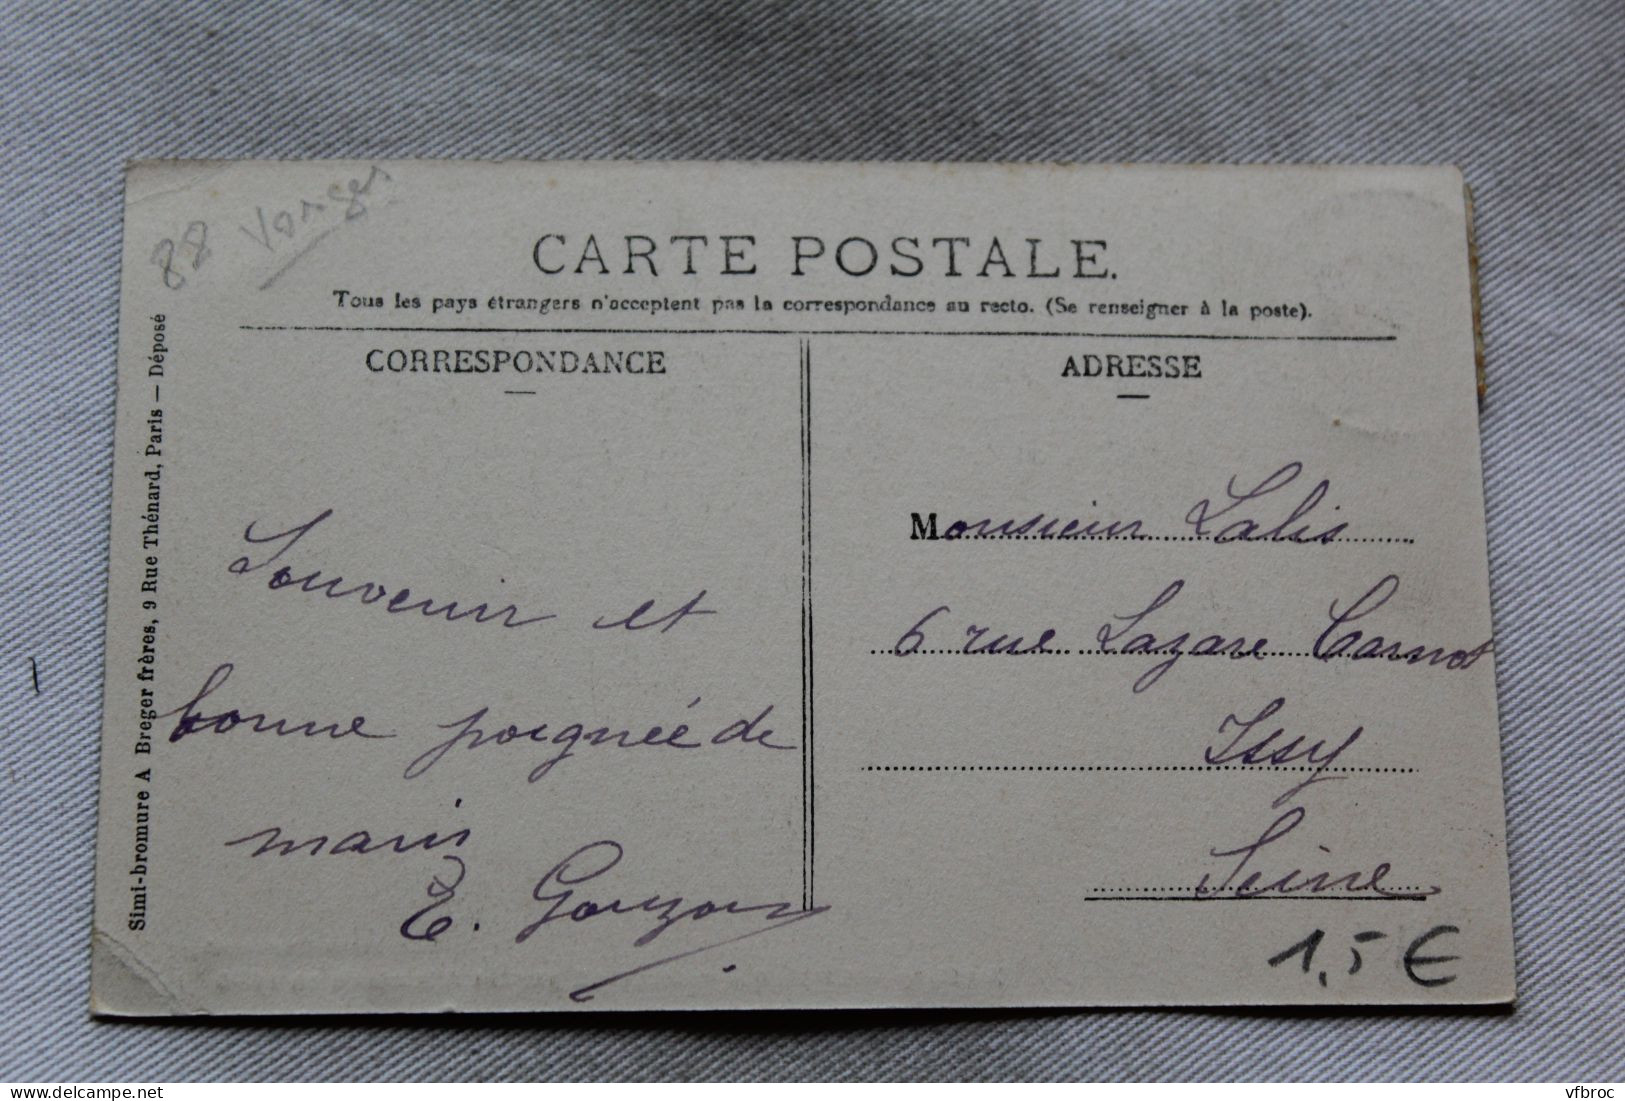 88 Vosges
CARTE POSTALE.
Tous les pays étrangers n'acceptent pas la correspondance au recto. (Se renseigner à la poste).
CORRESPONDANCE
ADRESSE
Simi-bromure A Breger frères, 9 Rue Thénard, Paris — Déposé
Souvenir et
bonne poignée de
main
E. Gouzon
Monsieur Lalis
6 rue Lazare Carnot
Issy
Seine
1,5 €
delcampe.net
vfbroc